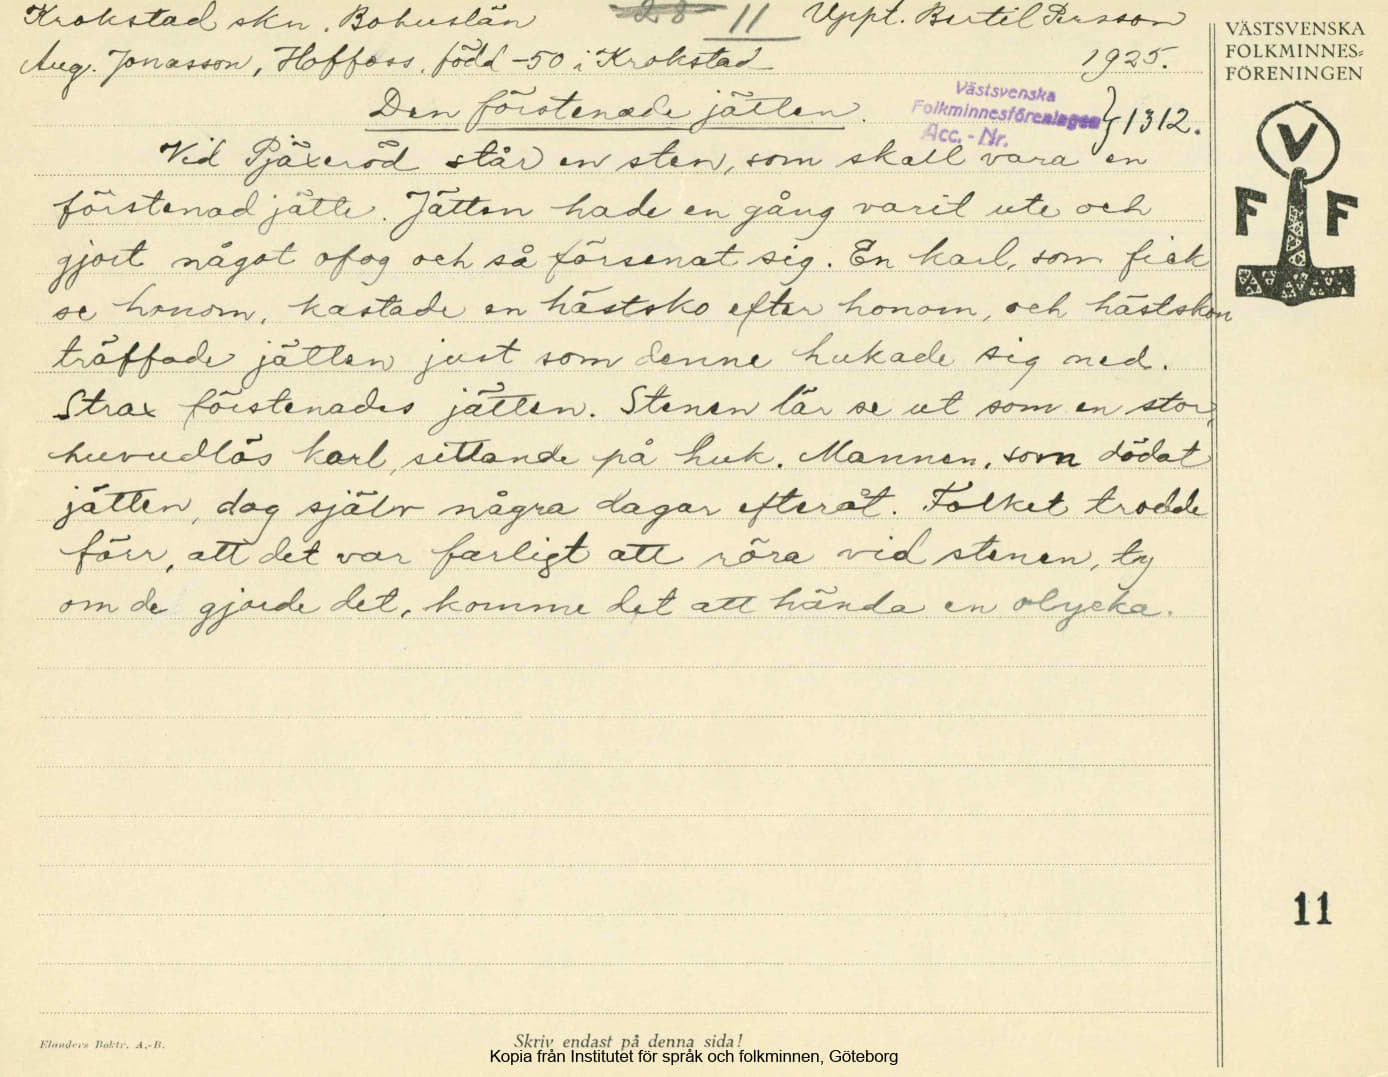 Krokstad skn. Bohuslän 28 11 Uppt. Bertil Persson
Aug. Jonasson, Hoffoss, född -50 i Krokstad 1925.
Den förstenade jätten.
Västsvenska
Folkminnesföreningen
Acc.-Nr. 1312.
Vid Pjäxeröd står en sten, som skall vara en
förstenad jätte. Jätten hade en gång varit ute och
gjort något ofog och så försenat sig. En karl, som fick
se honom, kastade en hästsko efter honom, och hästskon
träffade jätten just som denne hukade sig ned.
Strax förstenades jätten. Stenen lär se ut som en stor,
huvudlös karl, sittande på huk. Mannen, som dödat
jätten, dog själv några dagar efteråt. Folket trodde
förr, att det var farligt att röra vid stenen, ty
om de gjorde det, komme det att hända en olycka.
VÄSTSVENSKA
FOLKMINNES-
FÖRENINGEN
V
F F
11
Elanders Boktr. A.-B.
Skriv endast på denna sida!
Kopia från Institutet för språk och folkminnen, Göteborg